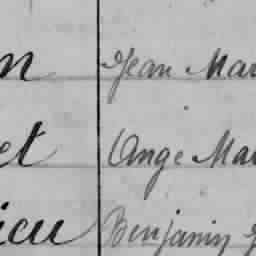 n Jean Mar
et Ange Mar
ieu Benjamin